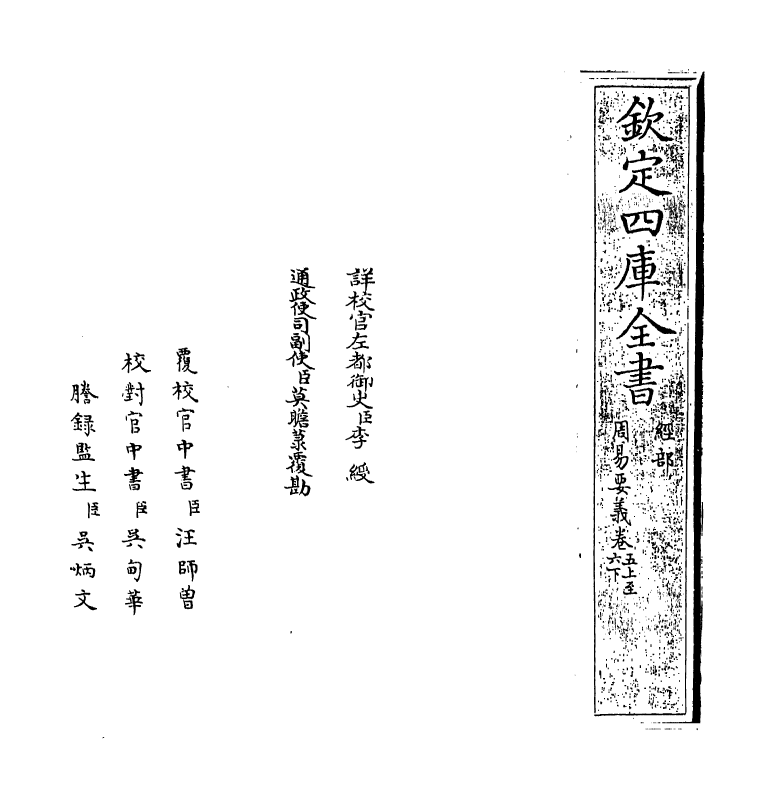 欽定四庫全書
經部
周易要義卷五上至六下
詳校官左都御史臣李綬
通政使司副使臣莫瞻菉覆勘
覆校官中書臣汪師曾
校對官中書臣吳甸華
謄録監生臣吳炳文